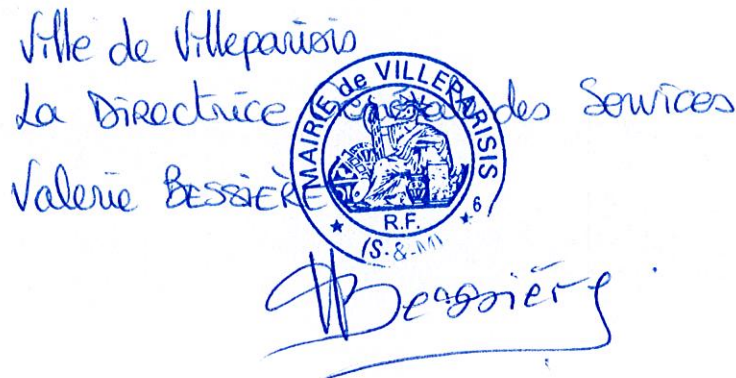 Ville de Villeparisis
La Directrice Générale des Services
Valerie BESSIÈRE
MAIRIE de VILLEPARISIS
6
R.F.
(S.&.M)
VBessière